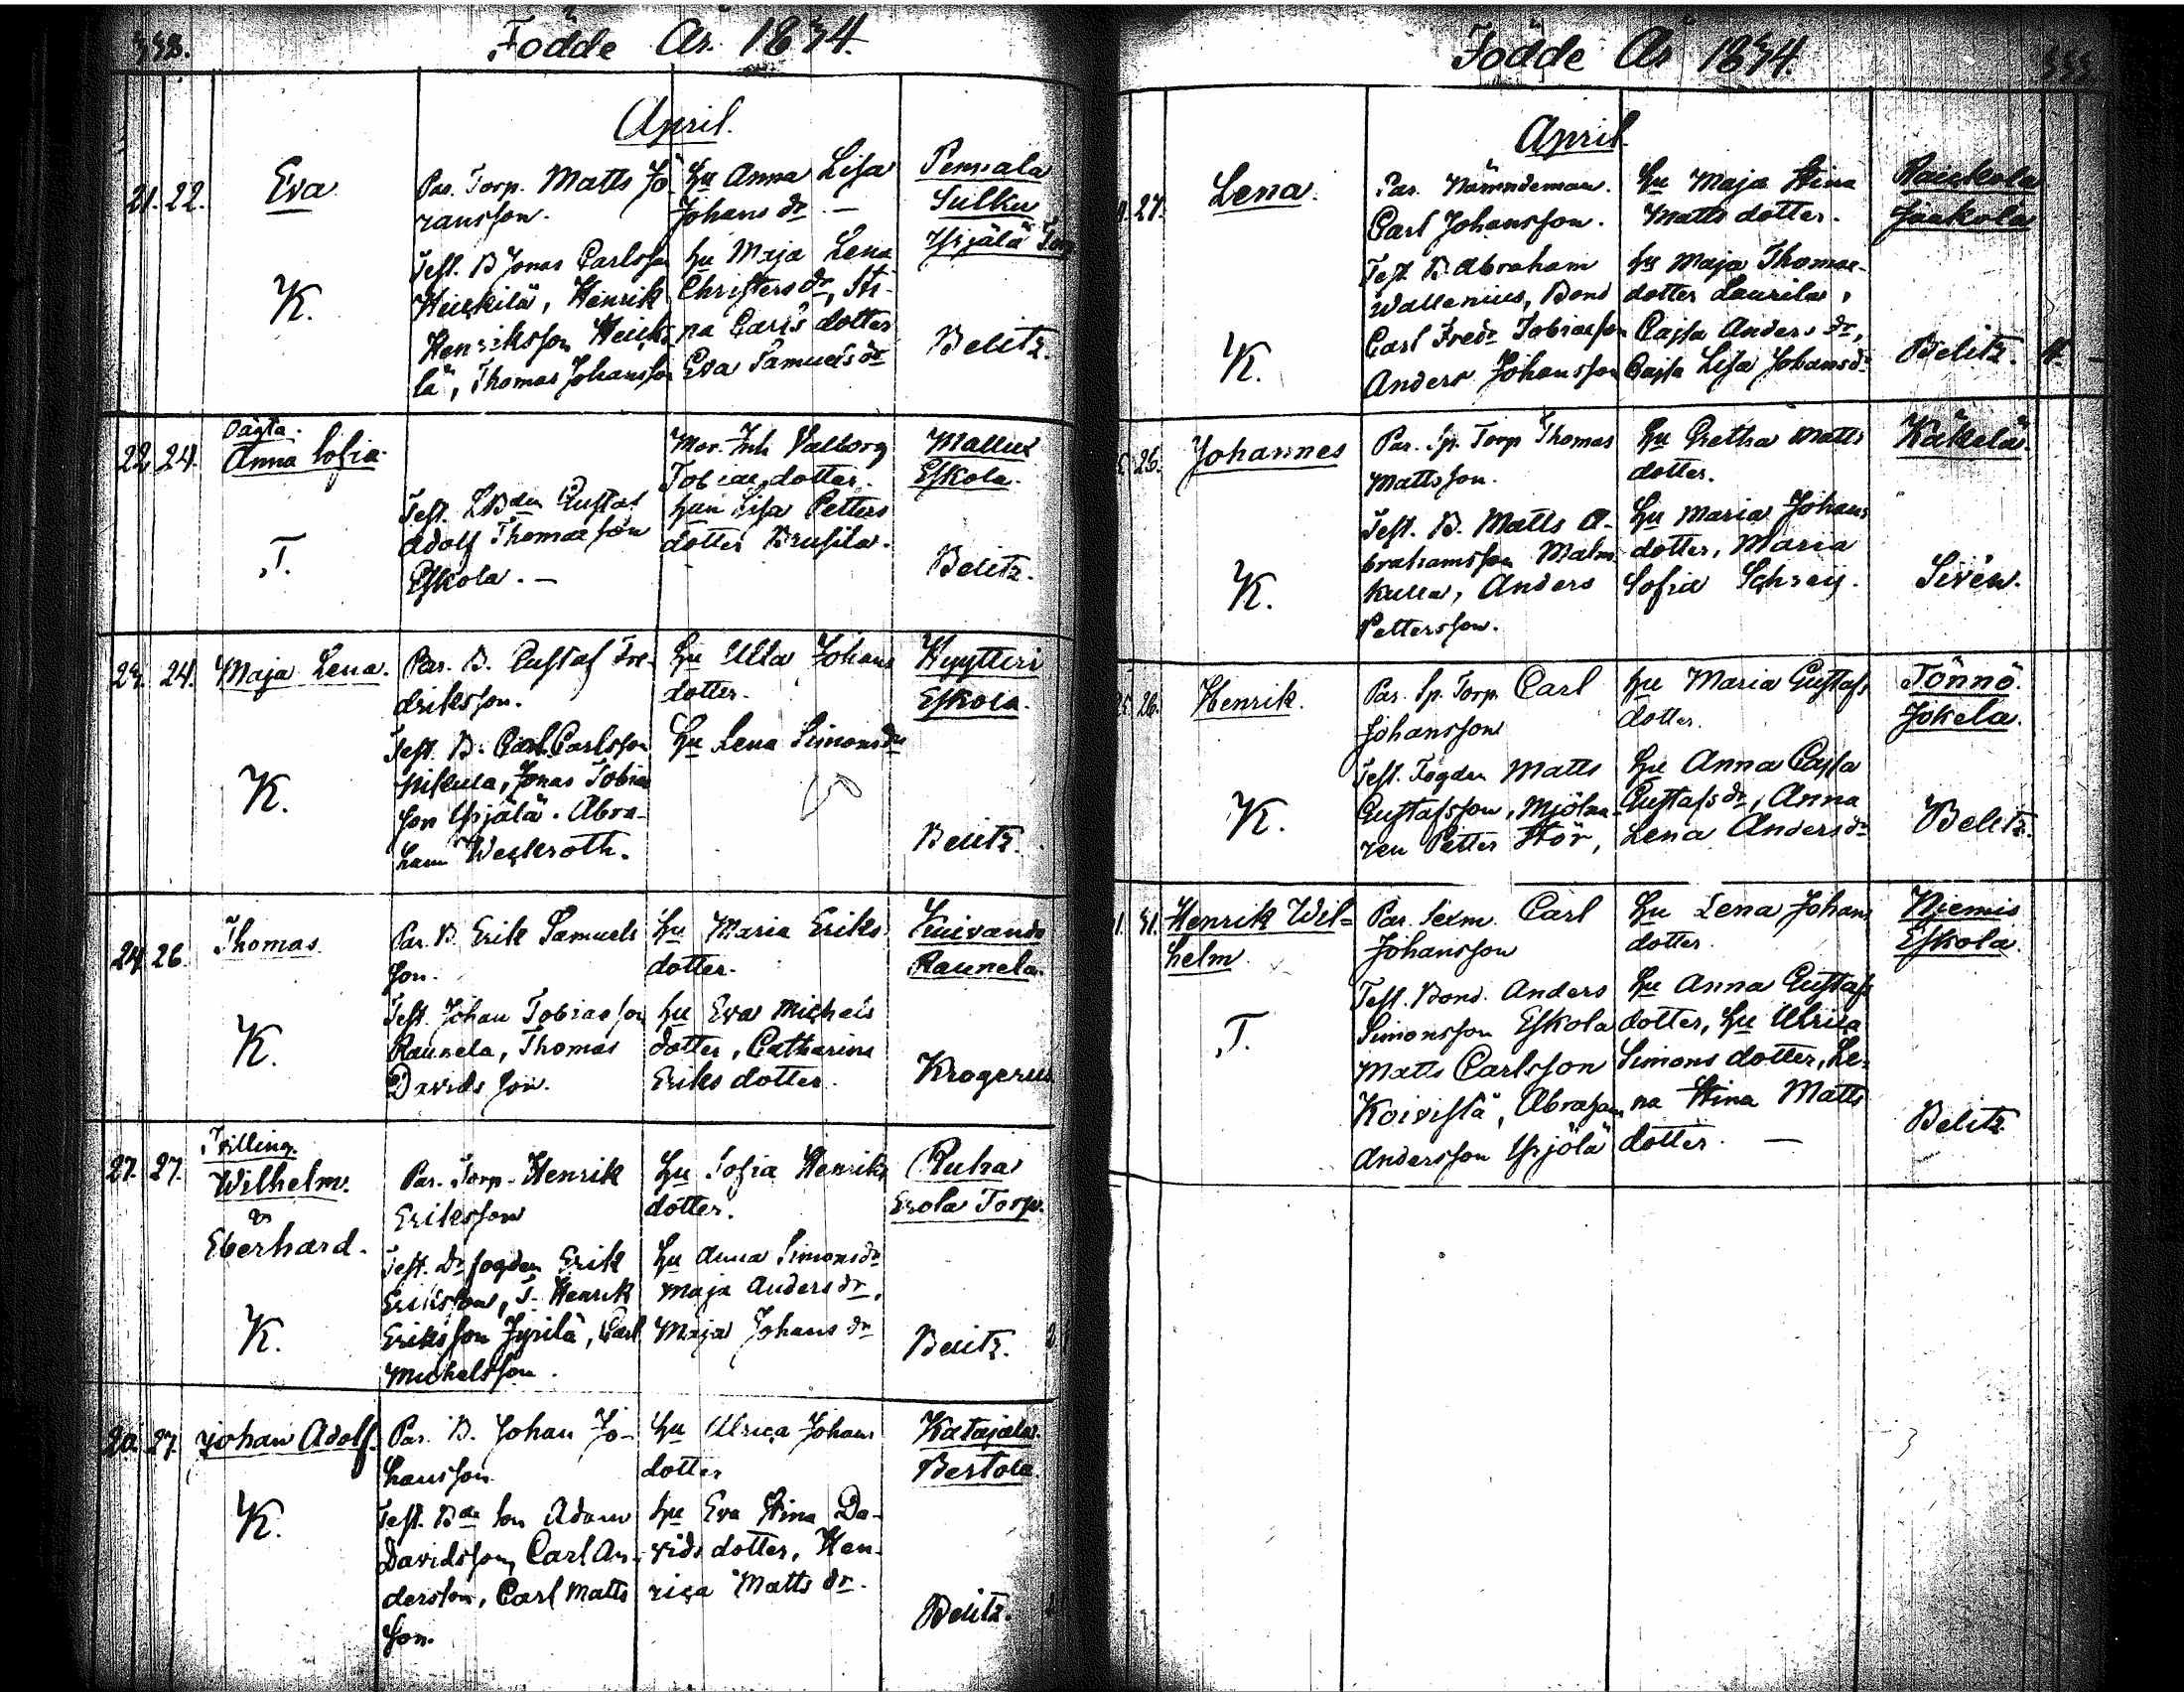 338.
Födde År. 1834.
April.
21. 22.
Eva
K.
Par. Torp. Matts Jö-
ransson.
Test. B Jonas Carlsson
Heickilä, Henrik
Henriksson Heicki
lä, Thomas Johansson
Hu Anna Lisa
Johans dr. —
Hu Maja Lena
Christers dr, Sti-
na Carls dotter
Eva Samuels dr
Pensala
Sulku
Yrjälä Torp
Belitz.
22. 24.
Oägta.
Anna Sofia.
T.
Test. Bden Gustaf
Adolf Thomae son
Eskola. —
Mor. Inh Valborg
Tobiae dotter.
Hun Lisa Petters
dotter Brusila.
Eskola.
Belitz.
24.
Maja Lena.
K.
Par. B. Gustaf Fre-
driksson.
Test. B. Carl Carlsson
Jonas Tobias
son Yrjälä. Abra-
ham Weckroth.
Hu Ulla Johans
dotter.
Hu Lena Simonsdr
Hyytteri
Eskola.
Belitz.
24. 26.
Thomas.
K.
Par. B. Erik Samuels
son.
Test. Johan Tobiasson
Raunela, Thomas
Davids son.
Hu Maria Eriks
dotter.
Hu Eva Michels
dotter, Catharina
Eriks dotter.
Kuivando
Raunela.
Krogerus
27. 27.
Tvilling.
Wilhelm.
Eberhard.
K.
Par. Torp. Henrik
Eriksson
Test. Dr fogden Erik
Eriksson, T. Henrik
Eriksson Jyrilä, Carl
Michelsson.
Hu Sofia Henriks
dotter.
Hu Anna Simonsdr
Maja Anders dr,
Maja Johans dr
Ruha
Erola Torp.
Belitz.
27.
Johan Adolf.
K.
Par. B. Johan Jo-
hansson.
Test. Bde son Adam
Davidsson, Carl An-
dersson, Carl Matts
son.
Hu Ulrica Johans
dotter
Hu Eva Stina Da-
vids dotter, Hen-
rica Matts dr.
Katajala.
Bertola.
Belitz.
Födde År 1834.
April
27.
Lena.
K.
Par. Nämndeman.
Carl Johansson.
Test. B. Abraham
Wallenius, Bond
Carl Fredr Tobiasson
Anders Johansson
Hu Maja Stina
Matts dotter.
Hu Maja Thomae-
dotter Laurila,
Cajsa Anders dr,
Cajsa Lisa Johansdr
Jaakola
Belitz.
26.
Johannes
K.
Par. Sp. Torp Thomas
Mattsson.
Test. B. Matts A-
brahamsson Malm
kulla, Anders
Pettersson.
Hu Gretha Matts
dotter.
Hu Maria Johans
dotter, Maria
Sofia Schreij.
Käkelä.
Sivén.
26.
Henrik.
K.
Par. Sp. Torp. Carl
Johansson
Test. Fogden Matts
Gustafsson, Mjölna-
ren Petter Stör,
Hu Maria Gustafs
dotter.
Hu Anna Cajsa
Gustafs dr, Anna
Lena Anders dr
Tönnö.
Jokela.
Belitz.
Henrik Wil=
helm.
T.
Par. Sexm. Carl
Johansson
Test. Bond. Anders
Simonsson Eskola
Matts Carlsson
Koivistä, Abraham
Andersson Yrjölä
Hu Lena Johans
dotter.
Hu Anna Gustafs
dotter, Hu Ulrica
Simons dotter, Le-
na Stina Matts
dotter. —
Niemis
Eskola.
Belitz